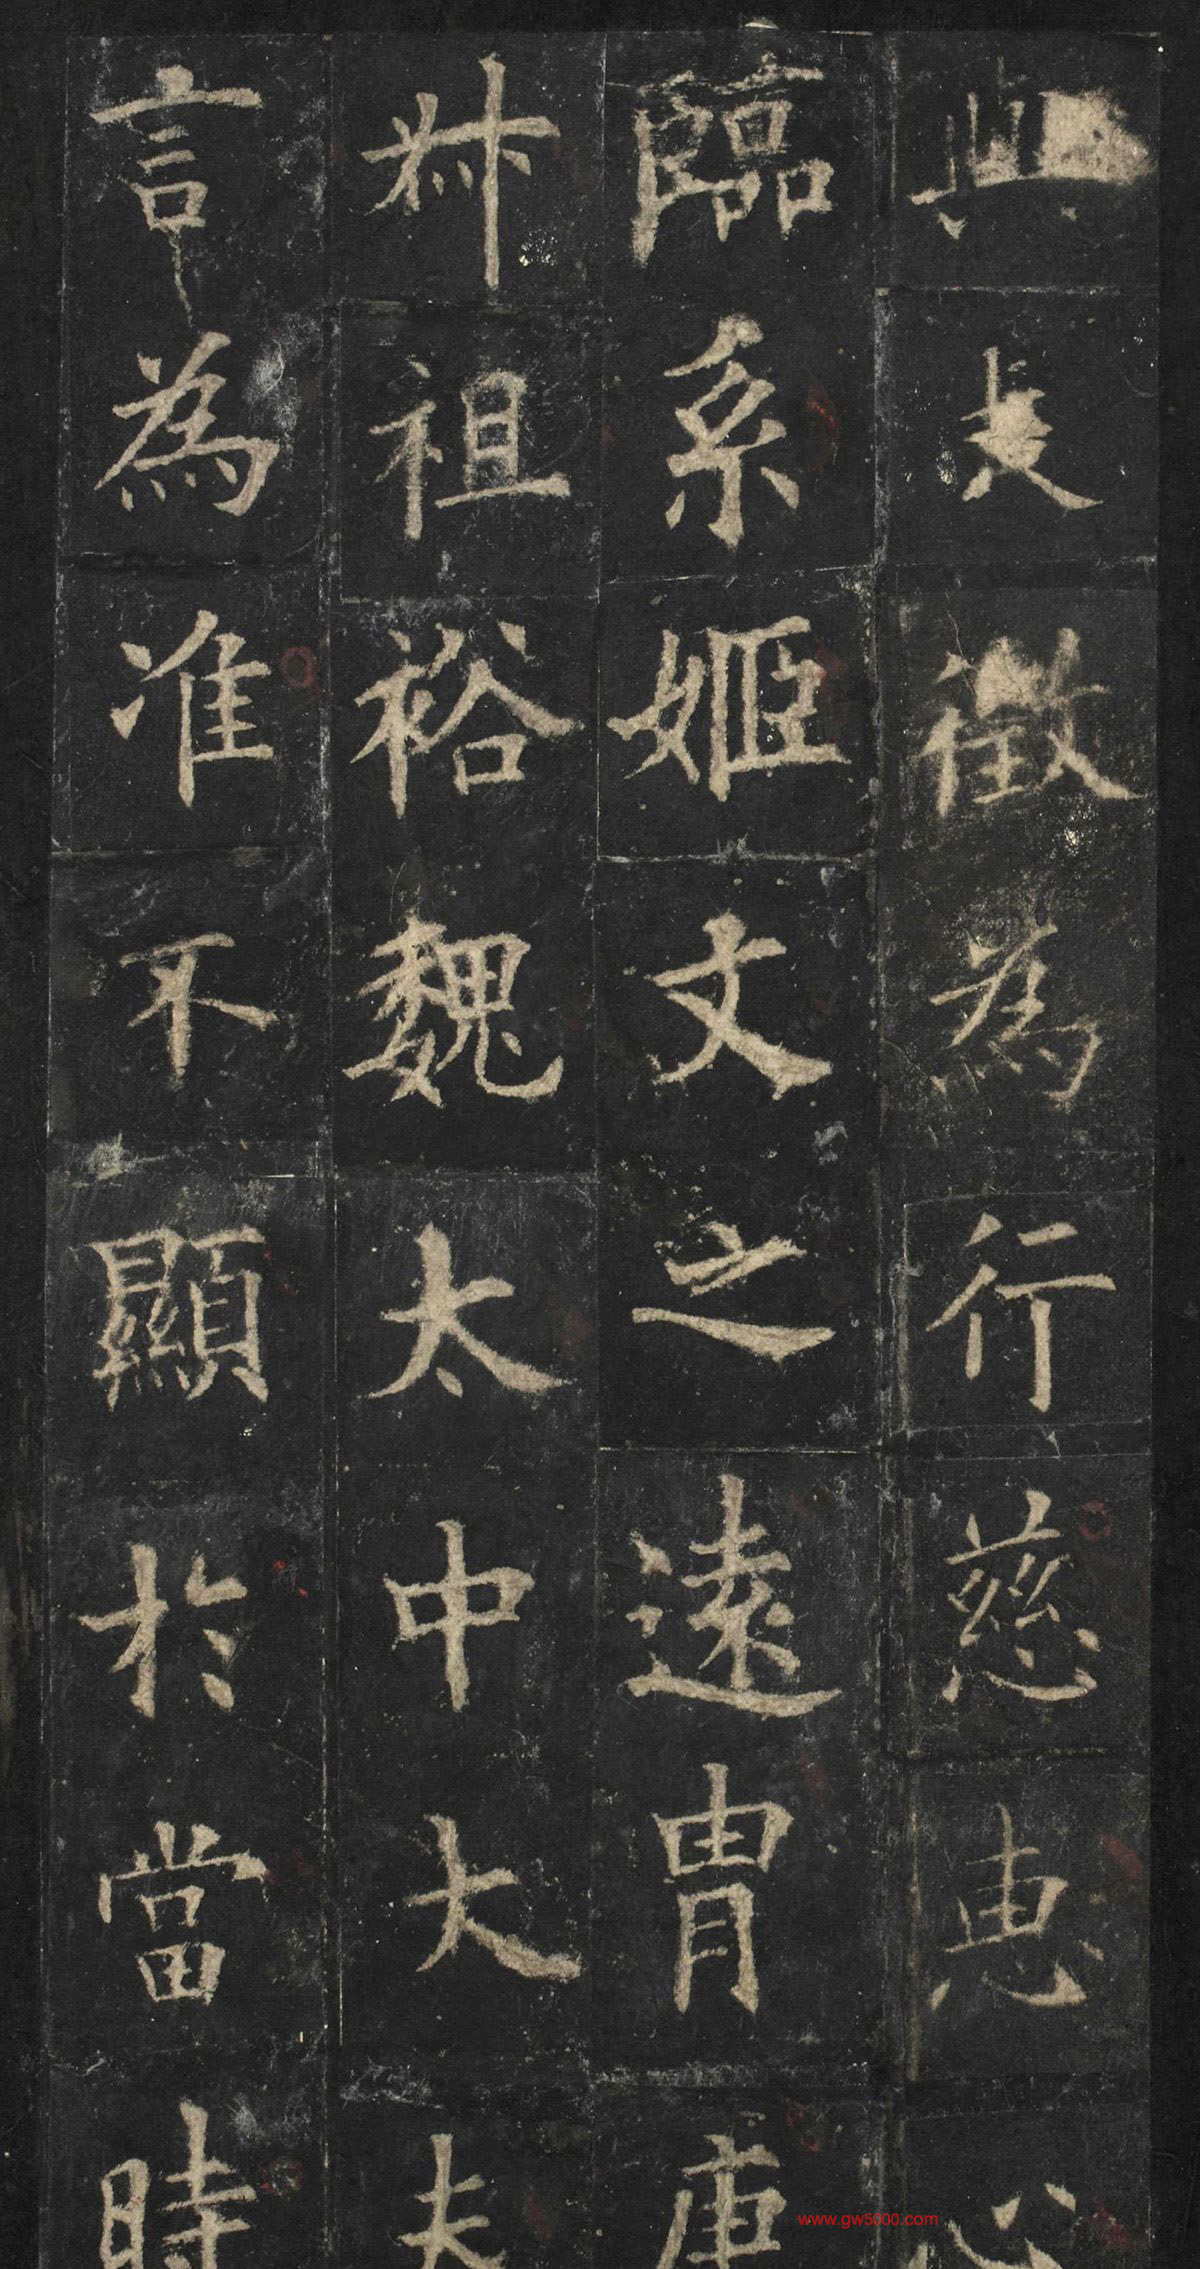 徵為行慈惠心
臨系姬文之遠胄康
祖裕魏太中大夫
言為准不顯於當時
www.gw5000.com